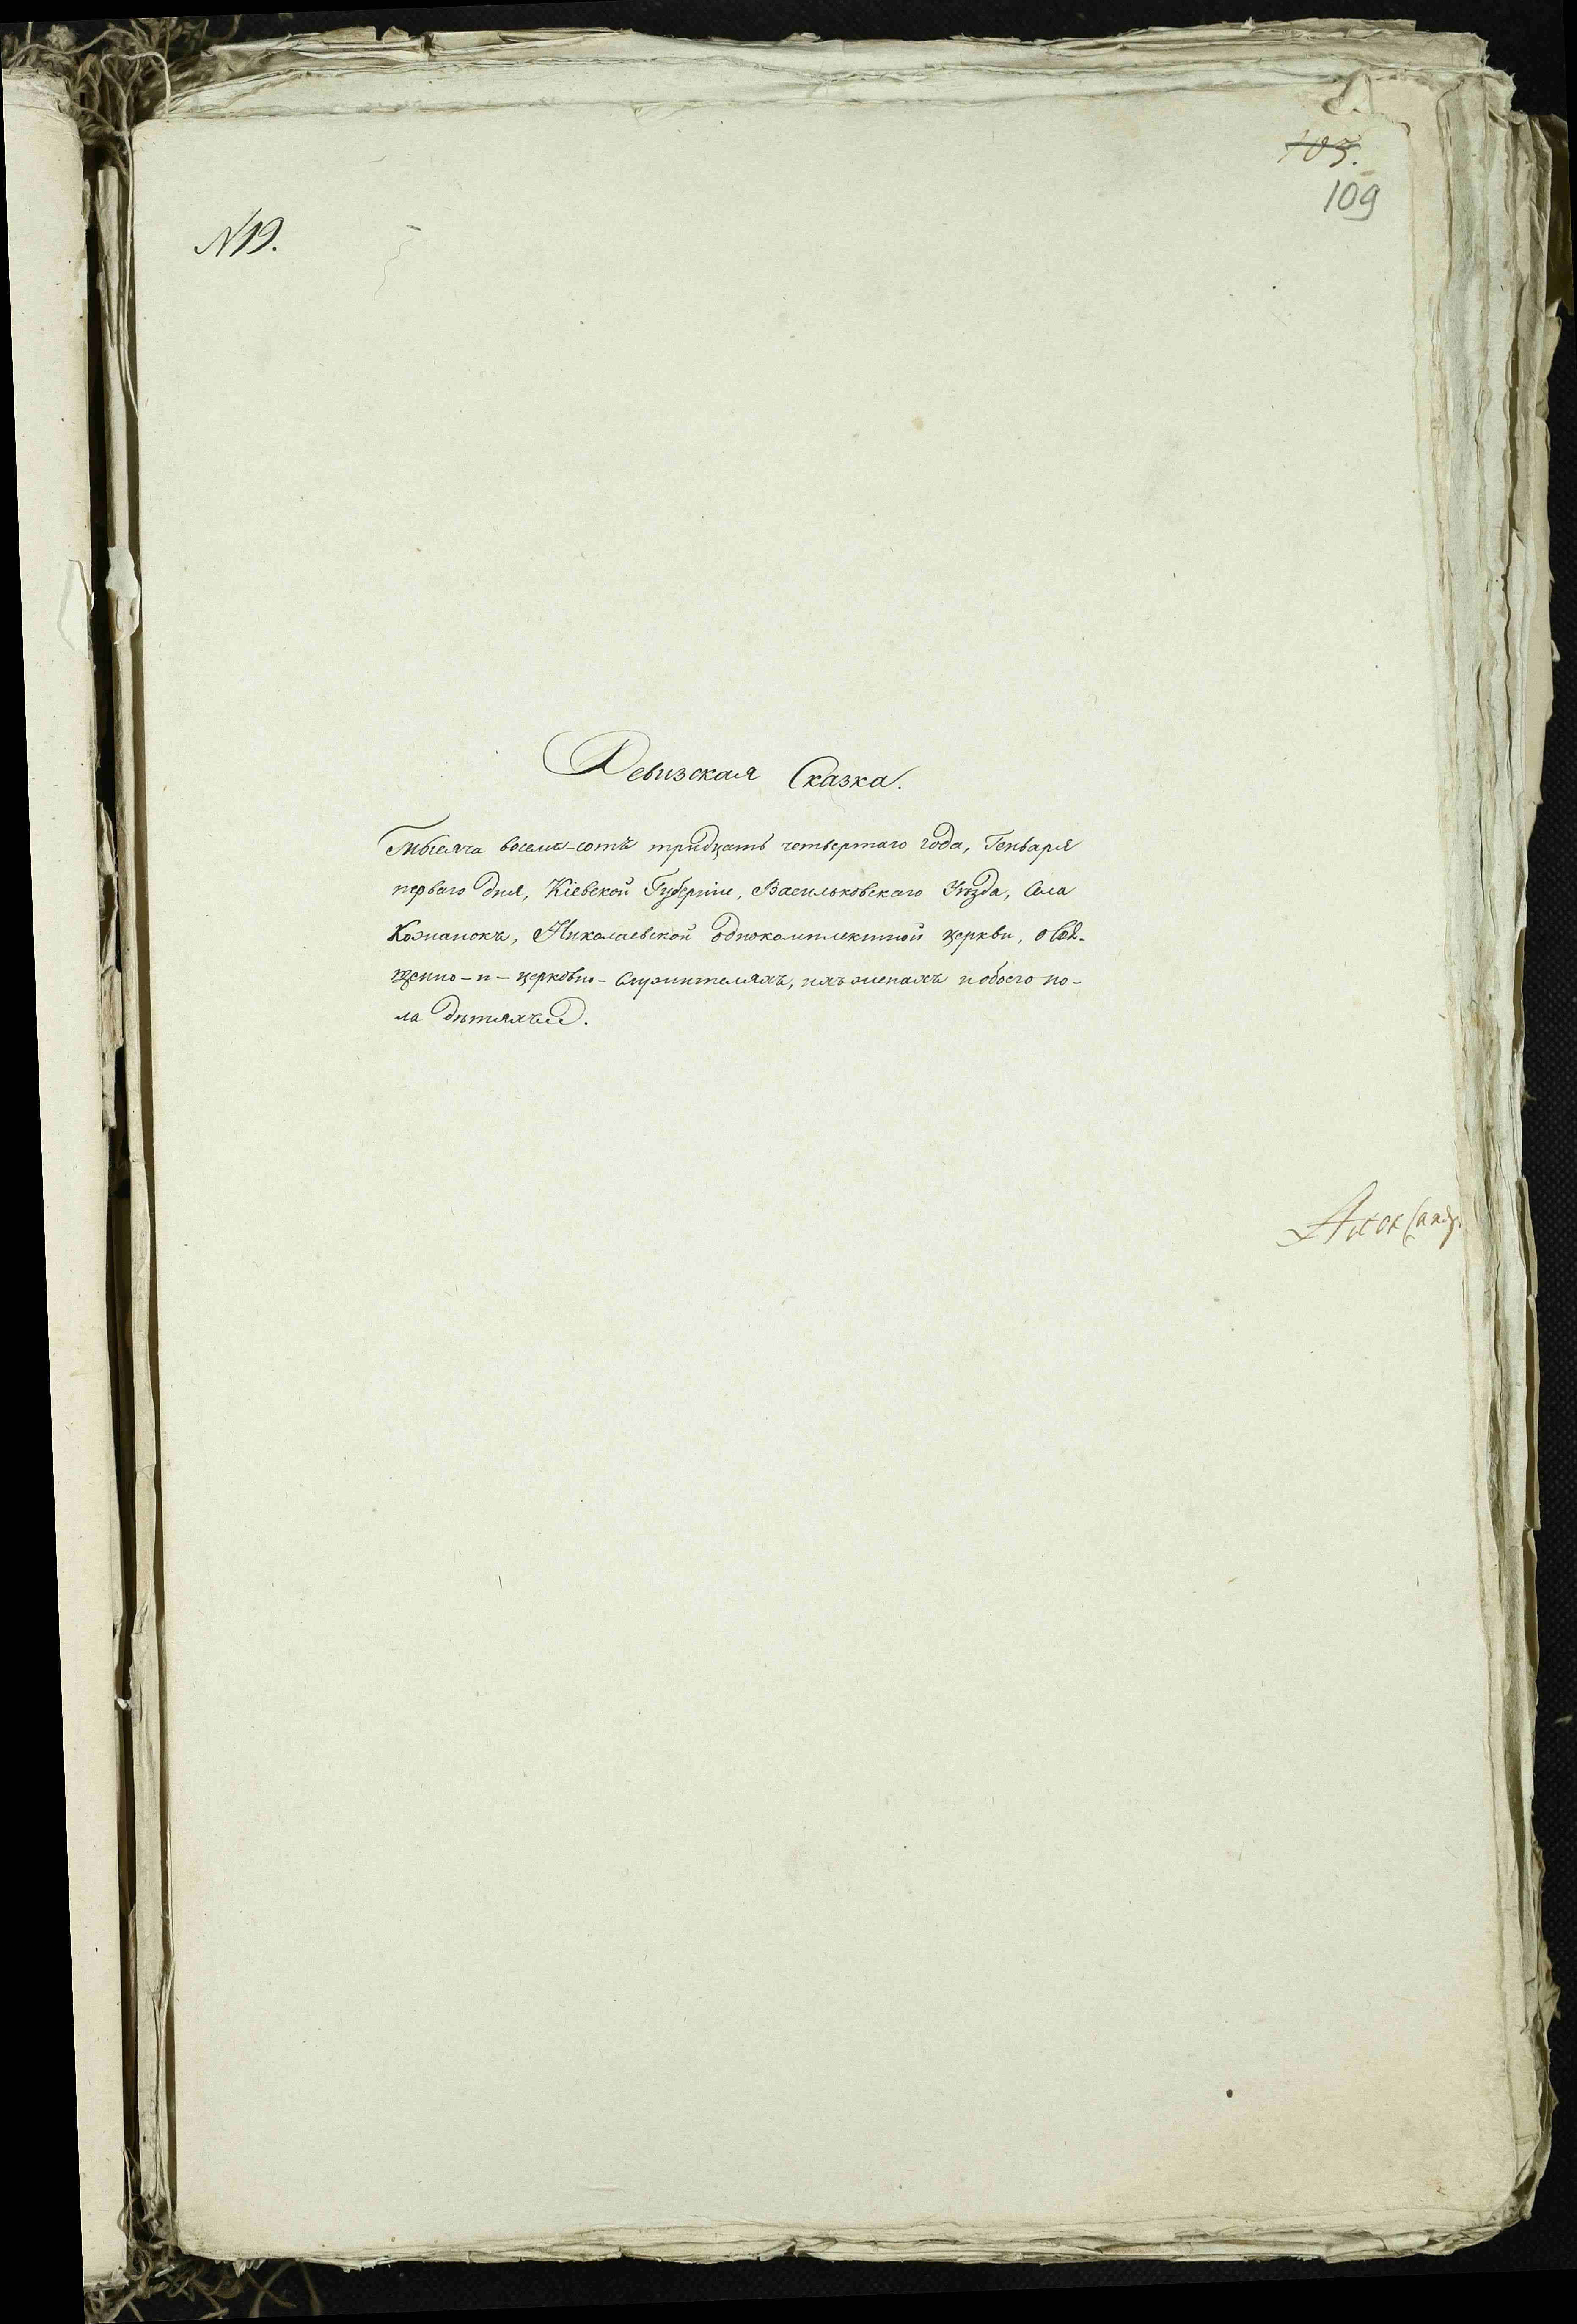 105.
109
N19.
Ревизская Сказка.
Тысяча восемь-сотъ тридцать четвертаго года, Генваря
перваго дня, Кіевской Губерніи, Васильковскаго Уѣзда, Села
Кожанокъ, Николаевской однокомплектной церкви, о Свя-
щенно-и-церковно-Служителяхъ, ихъ женахъ и обоего по-
ла дѣтяхъ.
Александр